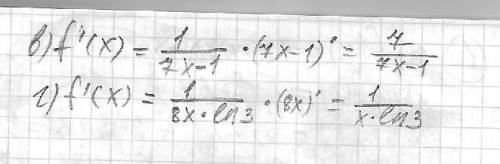 в) f'(x) = 1/(7x-1) · (7x-1)' = 7/(7x-1)
г) f'(x) = 1/(8x·ln3) · (8x)' = 1/(x·ln3)